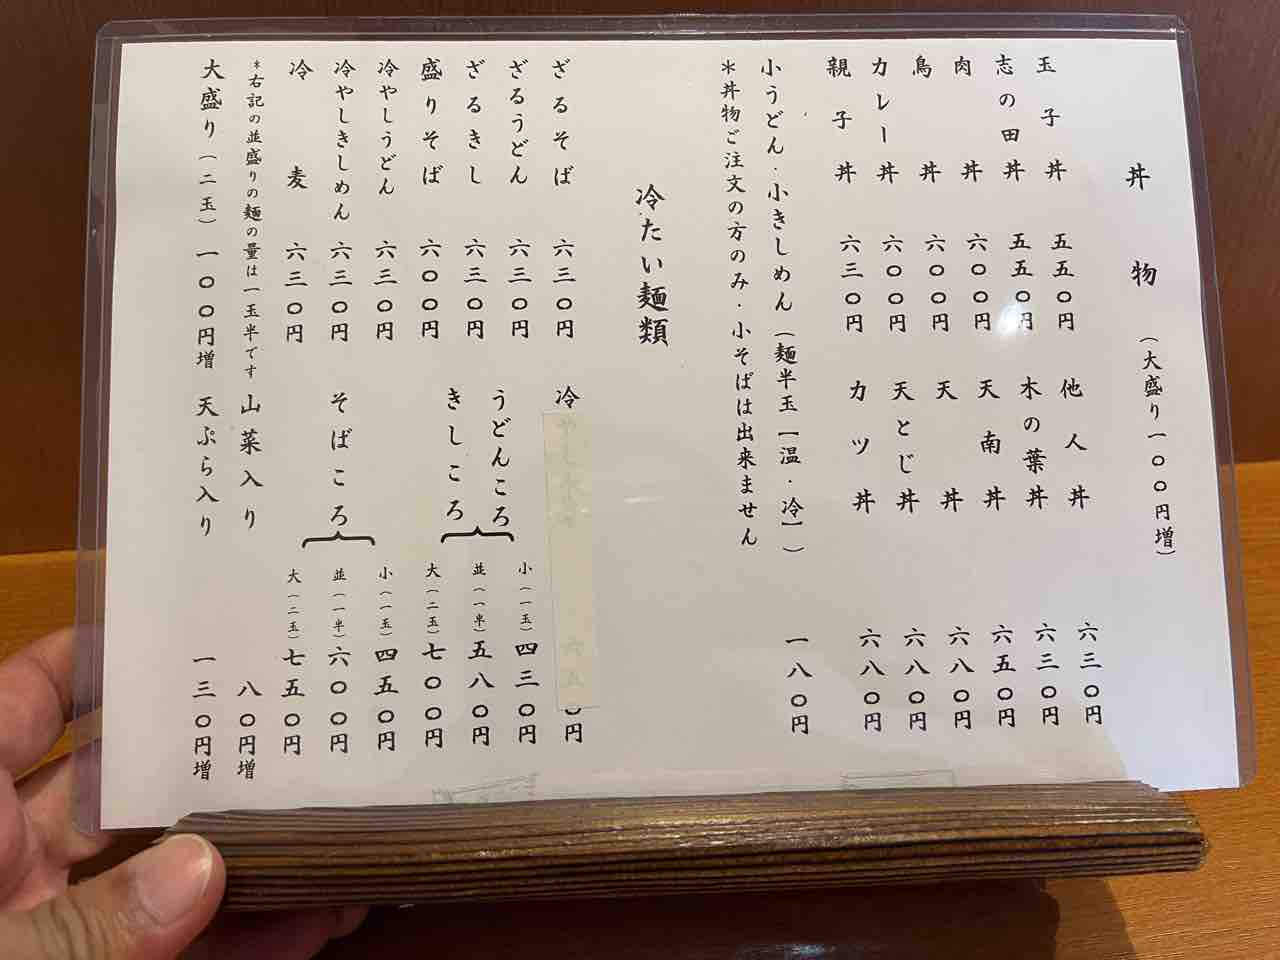 丼物（大盛り一〇〇円増）
玉子丼 五五〇円
志の田丼 五五〇円
肉丼 六〇〇円
鳥丼 六〇〇円
カレー丼 六〇〇円
親子丼 六三〇円
他人丼 六三〇円
木の葉丼 六三〇円
天南丼 六五〇円
天丼 六八〇円
天とじ丼 六八〇円
カツ丼 六八〇円
小うどん・小きしめん（麺半玉【温・冷】） 一八〇円
＊丼物ご注文の方のみ・小そばは出来ません
冷たい麺類
ざるそば 六三〇円
ざるうどん 六三〇円
ざるきし 六三〇円
盛りそば 六〇〇円
冷やしうどん 六三〇円
冷やしきしめん 六三〇円
冷麦 六三〇円
＊右記の並盛りの麺の量は一玉半です
大盛り（二玉）一〇〇円増
冷やし 六五〇円
うどんころ
きしころ
小（一玉）四三〇円
並（一半）五八〇円
大（二玉）七〇〇円
そばころ
小（一玉）四五〇円
並（一半）六〇〇円
大（二玉）七五〇円
山菜入り 八〇円増
天ぷら入り 一三〇円増